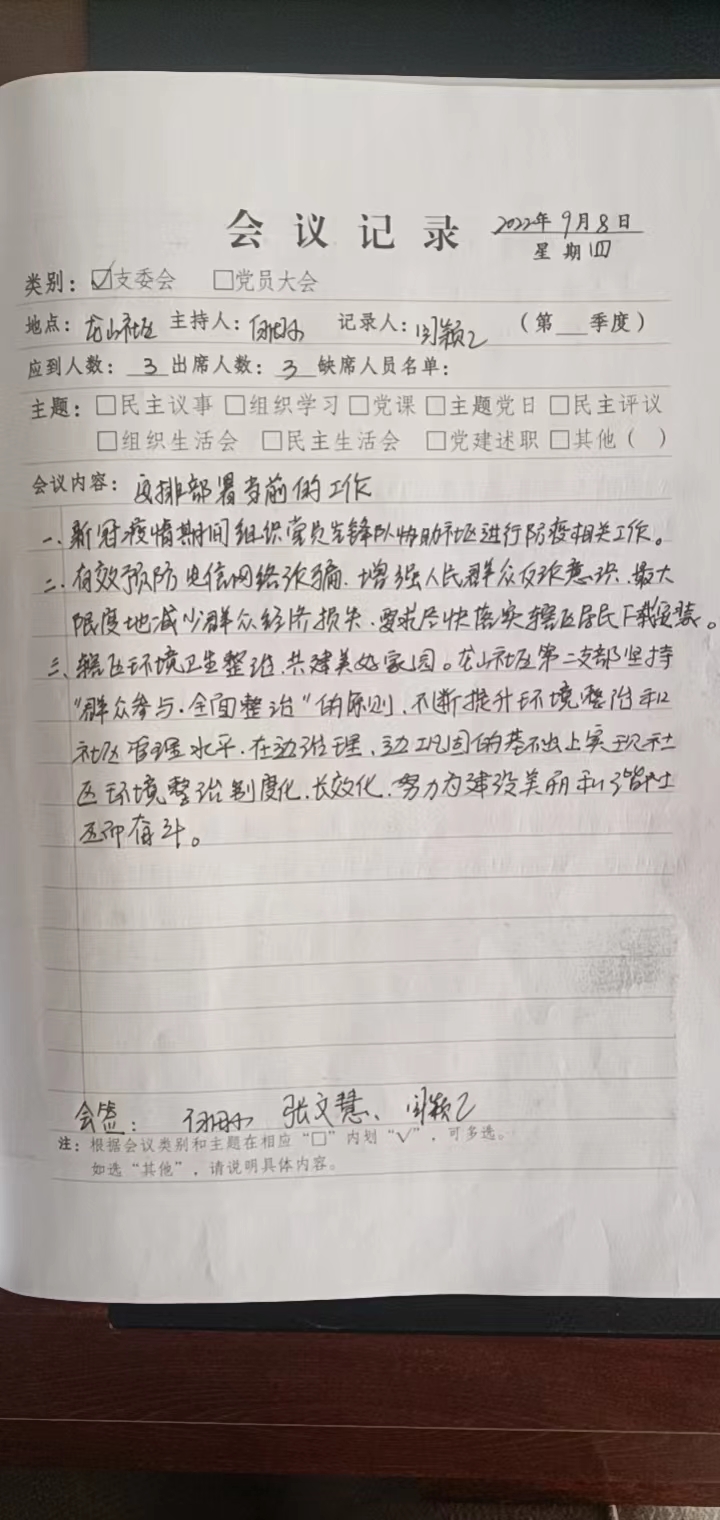 会议记录 2022年9月8日
星期四
类别：☑支委会 □党员大会
地点：龙山社区 主持人： 记录人：闫颖 （第__季度）
应到人数：3 出席人数：3 缺席人员名单：
主题：□民主议事 □组织学习 □党课 □主题党日 □民主评议
□组织生活会 □民主生活会 □党建述职 □其他（ ）
会议内容：安排部署当前的工作
一、新冠疫情期间组织党员先锋队协助社区进行防疫相关工作。
二、有效预防电信网络诈骗、增强人民群众反诈意识、最大
限度地减少群众经济损失、要求尽快落实辖区居民下载安装。
三、辖区环境卫生整治、共建美好家园。龙山社区第二支部坚持
“群众参与、全面整治”的原则、不断提升环境整治和
社区管理水平、在边治理、边巩固的基础上实现社
区环境整治制度化、长效化、努力为建设美丽和谐社
区而奋斗。
会签： 张文慧、闫颖
注：根据会议类别和主题在相应“□”内划“√”，可多选。
如选“其他”，请说明具体内容。